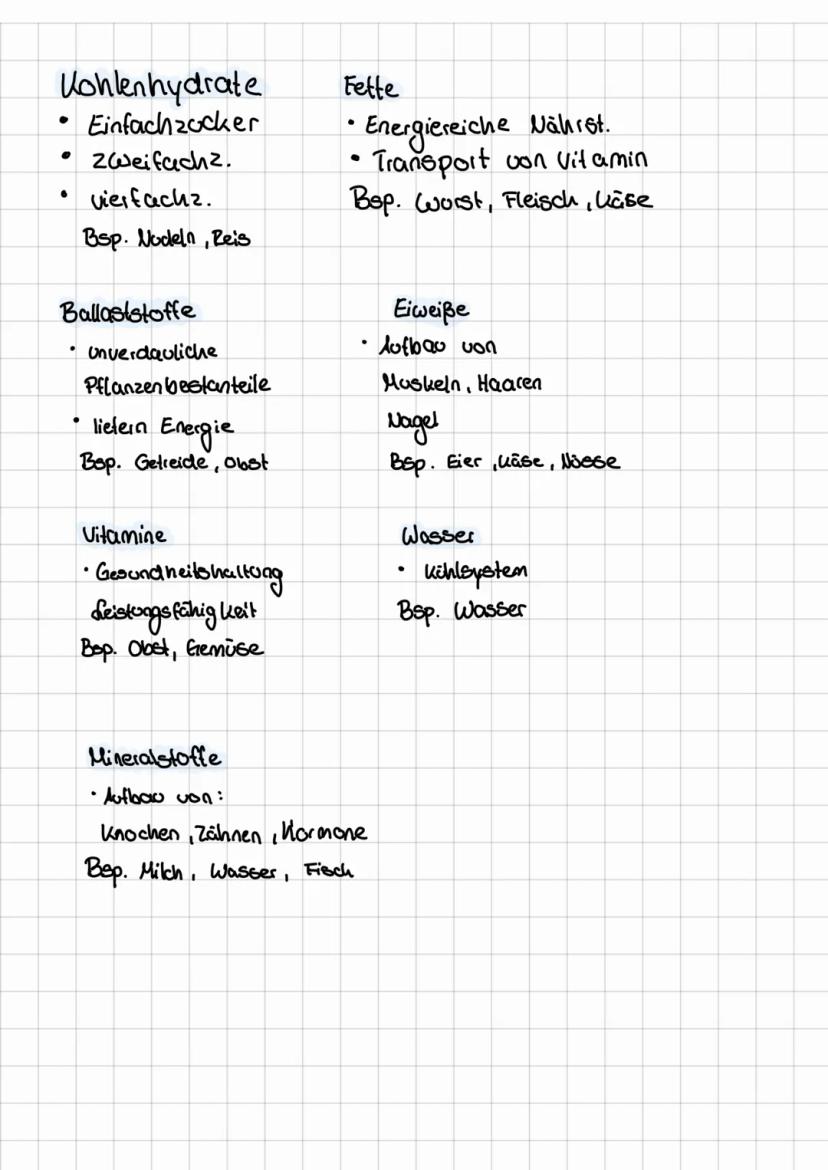 Kohlenhydrate
• Einfachzucker
• Zweifachz.
• vierfachz.
Bsp. Nudeln, Reis
Fette
• Energiereiche Nährst.
• Transport von Vitamin
Bsp. Wurst, Fleisch, Käse
Ballaststoffe
• unverdauliche
Pflanzenbestanteile
• liefern Energie
Bsp. Getreide, Obst
Eiweiße
• Aufbau von
Muskeln, Haaren
Nagel
Bsp. Eier, Käse, Nüsse
Vitamine
• Gesundheitshaltung
Leistungsfähigkeit
Bsp. Obst, Gemüse
Wasser
• Kühlsystem
Bsp. Wasser
Mineralstoffe
• Aufbau von:
Knochen, Zähnen, Hormone
Bsp. Milch, Wasser, Fisch